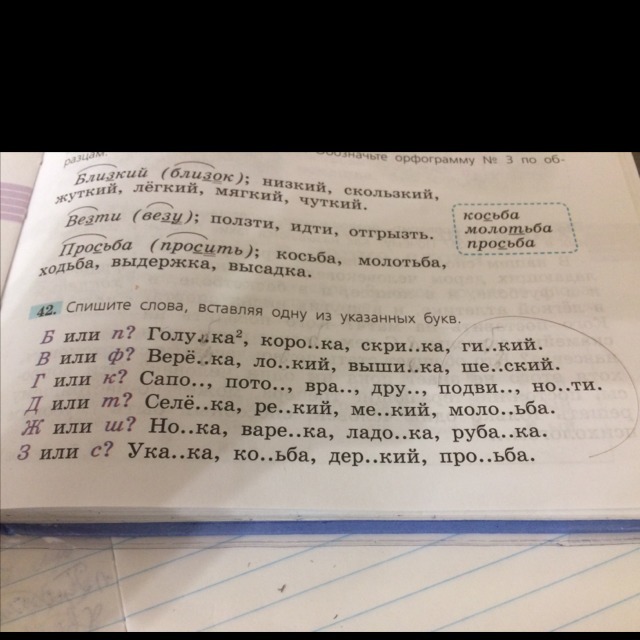 разцам. Обозначьте орфограмму № 3 по об-
Близкий (близок); низкий, скользкий,
жуткий, лёгкий, мягкий, чуткий.
Везти (везу); ползти, идти, отгрызть.
Просьба (просить); косьба, молотьба,
ходьба, выдержка, высадка.
косьба
молотьба
просьба
42. Спишите слова, вставляя одну из указанных букв.
Б или п? Голу..ка², коро..ка, скри..ка, ги..кий.
В или ф? Верё..ка, ло..кий, выши..ка, ше..ский.
Г или к? Сапо.., пото.., вра.., дру.., подви.., но..ти.
Д или т? Селё..ка, ре..кий, ме..кий, моло..ьба.
Ж или ш? Но..ка, варе..ка, ладо..ка, руба..ка.
З или с? Ука..ка, ко..ьба, дер..кий, про..ьба.